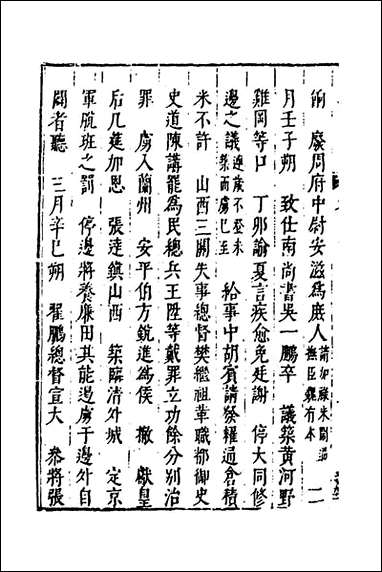 餉　廢周府中尉安㴾為庶人請加祿米閧
撫臣魏有本　二
月壬子朔　致仕南尚書吳一鵬卒　議築黃河野
雞岡等口　丁卯諭夏言疾愈免廷謝　停大同修
邊之議邊歲不登未
築而虜已至　給事中胡賓請發權過倉積
米不許　山西三關失事總督樊繼祖革職都御史
史道陳講罷為民總兵王陞等戴罪立功餘分別治
罪　虜入蘭州　安平伯方銳進為侯　撤獻皇
后几筵加恩　張達鎮山西　築臨清外城　定京
軍脫班之罰　停邊將養廉田其能邊虜于邊外自
闢者聽　三月辛巳朔　翟鵬總督宣大　叅將張